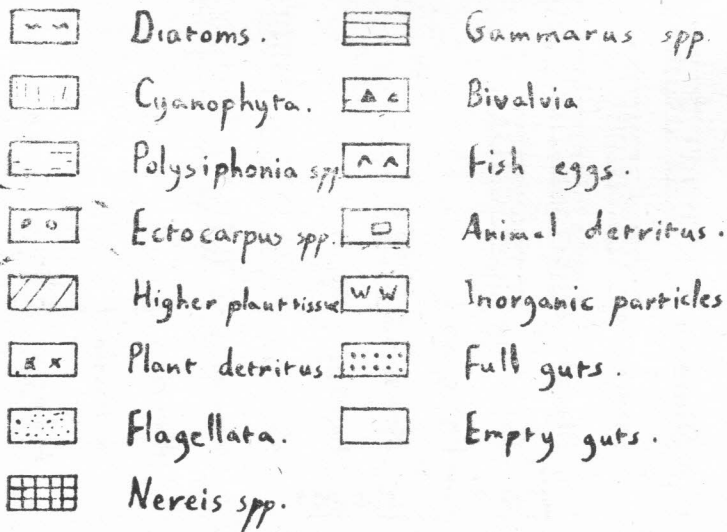 Diatoms.
Cyanophyta.
Polysiphonia spp.
Ectocarpus spp.
Higher plant tissue
Plant detritus
Flagellata.
Nereis spp.
Gammarus spp.
Bivalvia
Fish eggs.
Animal detritus.
Inorganic particles
Full guts.
Empty guts.